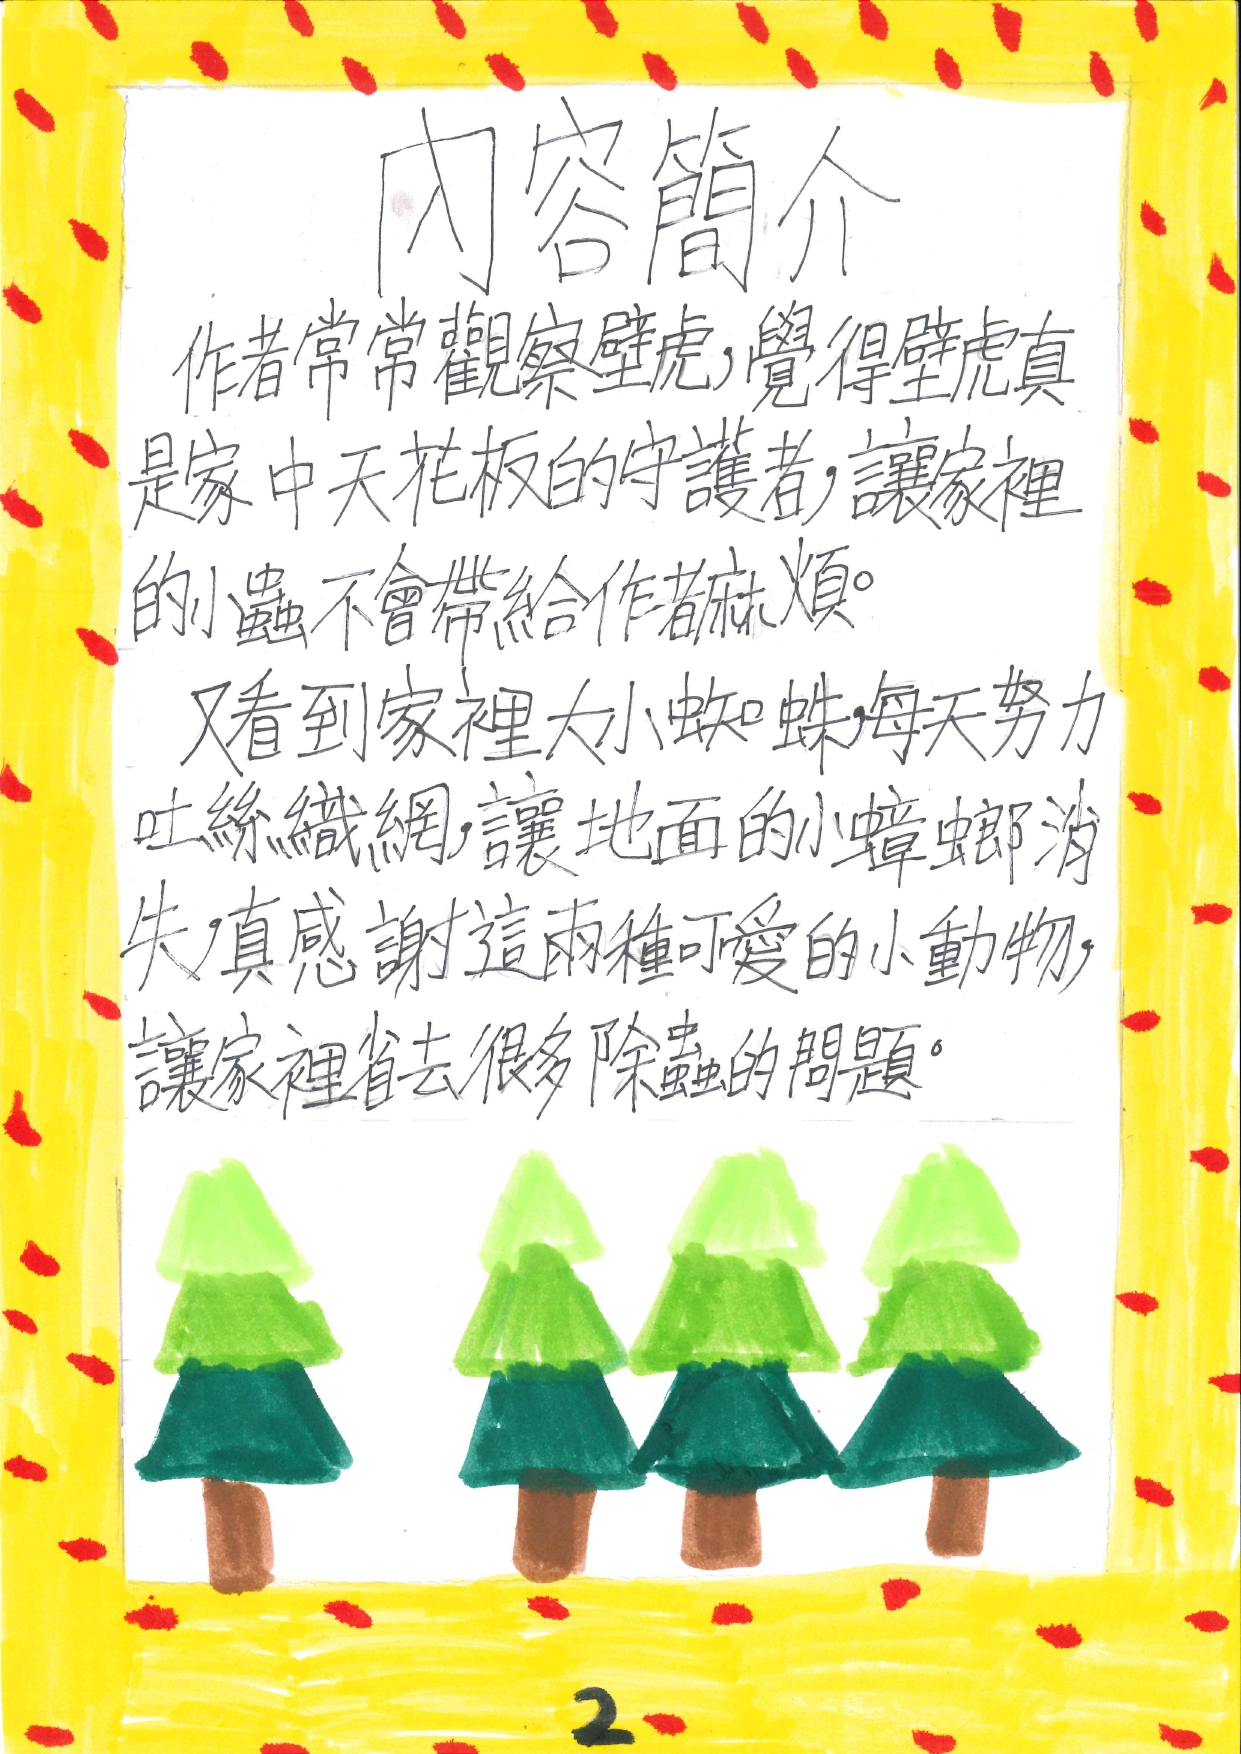 內容簡介
作者常常觀察壁虎,覺得壁虎真
是家中天花板的守護者,讓家裡
的小蟲不會帶給作者麻煩。
又看到家裡大小蜘蛛,每天努力
吐絲織網,讓地面的小蟑螂消
失,真感謝這兩種可愛的小動物,
讓家裡省去很多除蟲的問題。
2